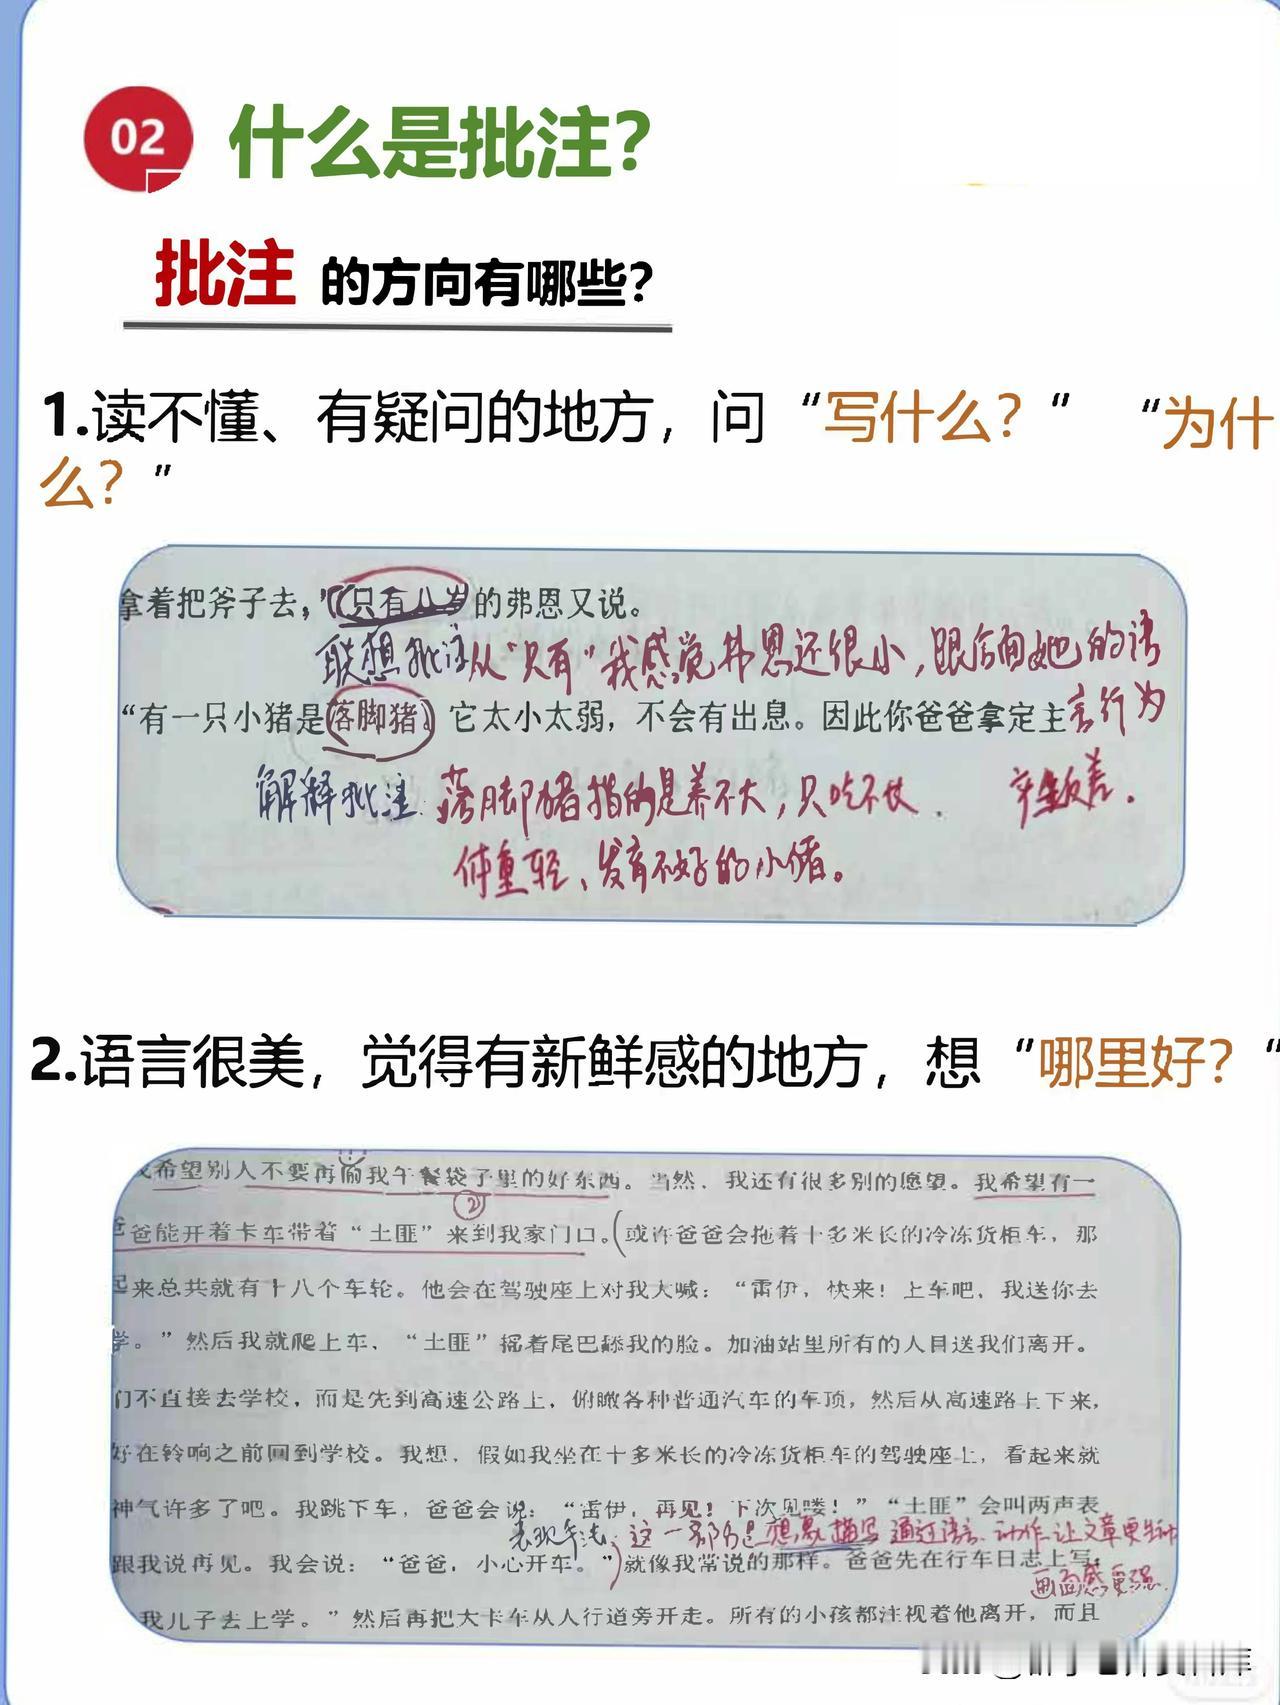 02 什么是批注？
批注 的方向有哪些？
1.读不懂、有疑问的地方，问“写什么？” “为什
么？”
拿着把斧子去，”只有八岁的弗恩又说。
联想批注 从“只有”我感觉弗恩还很小，跟后面她的语
“有一只小猪是落脚猪，它太小太弱，不会有出息。因此你爸爸拿定主
言行为
解释批注：落脚猪指的是养不大，只吃不长、
产生反差。
体重轻、发育不好的小猪。
2.语言很美，觉得有新鲜感的地方，想“哪里好？“
我希望别人不要再偷我午餐袋子里的好东西。当然，我还有很多别的愿望。我希望有一
②
爸爸能开着卡车带着“土匪”来到我家门口。（或许爸爸会拖着十多米长的冷冻货柜车，那
起来总共就有十八个车轮。他会在驾驶座上对我大喊：“雷伊，快来！上车吧，我送你去
学。”然后我就爬上车，“土匪”摇着尾巴舔我的脸。加油站里所有的人目送我们离开。
们不直接去学校，而是先到高速公路上，俯瞰各种普通汽车的车顶，然后从高速路上下来，
好在铃响之前回到学校。我想，假如我坐在十多米长的冷冻货柜车的驾驶座上，看起来就
神气许多了吧。我跳下车，爸爸会说：“雷伊，再见！下次见喽！”“土匪”会叫两声表
表现手法：这一部分是想象描写 通过语言、动作、让文章更生动
跟我说再见。我会说：“爸爸，小心开车。”）就像我常说的那样。爸爸先在行车日志上写：
画面感更强
我儿子去上学。”然后再把大卡车从人行道旁开走。所有的小孩都注视着他离开，而且